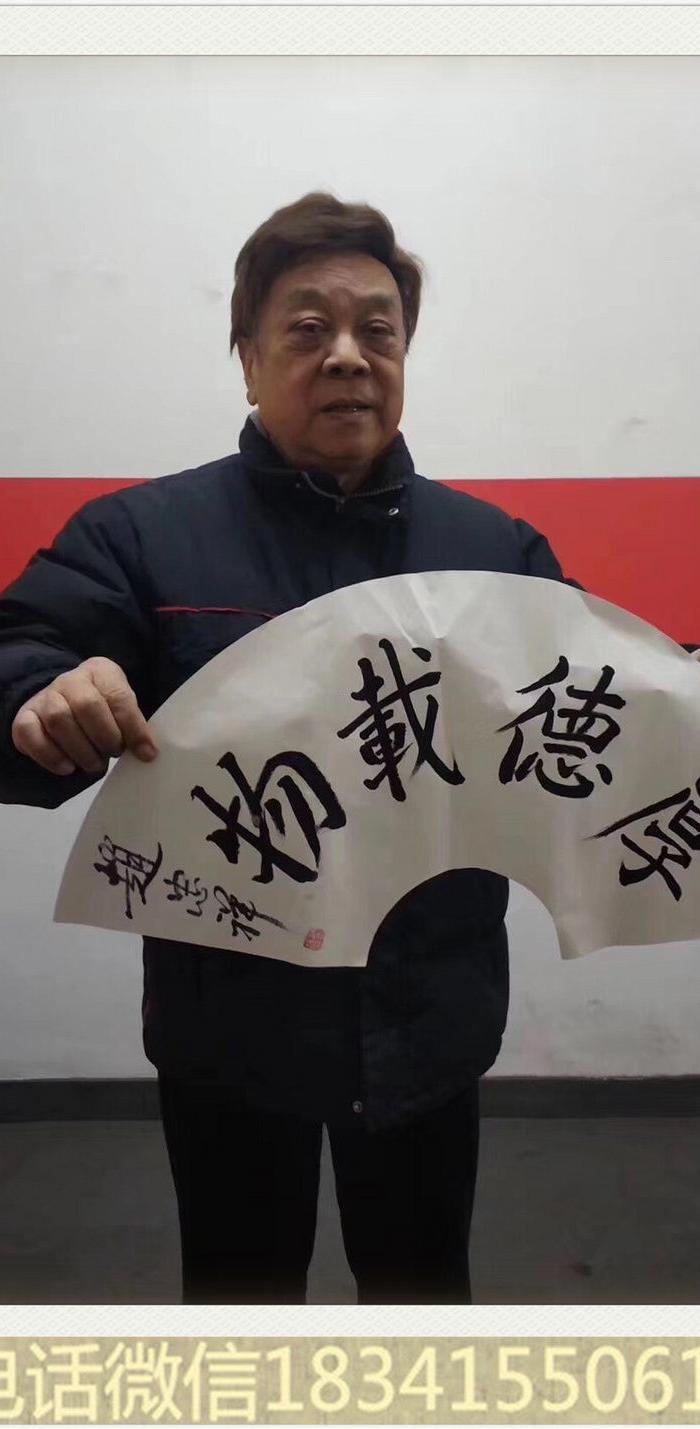 厚德載物
趙忠祥
电话微信1834155061